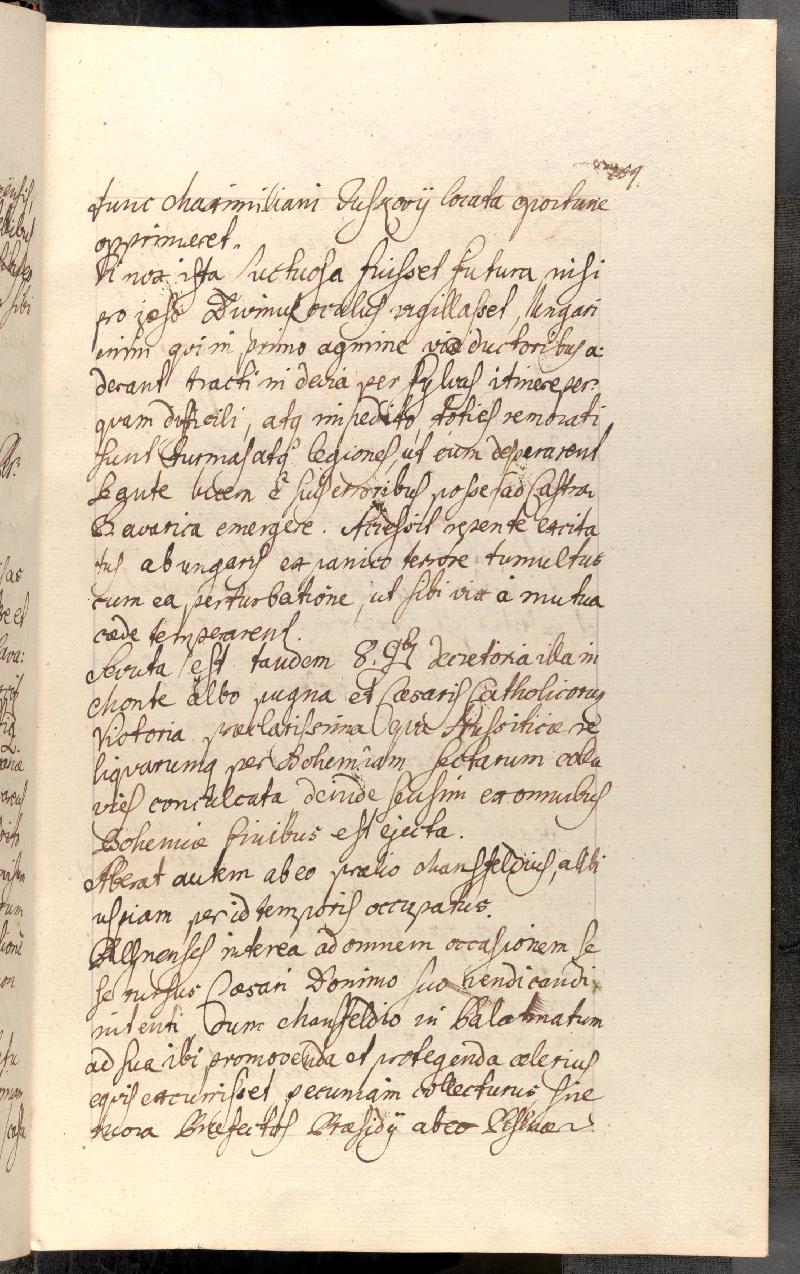 tunc Maximiliani Tuskovij locata oportune
opprimeret.
Vi nox ista luctuosa fuisset futura nisi
pro ipso Divinus oculus vigillasset, Ungari
enim qui in primo agmine viae ductoribus a:
derant tracti in devia per sylvas itinere per:
quam difficili, atq impedito, toties remorati
sunt turmas atq legiones, ut eum desperarent
se gute bucem è suis erroribus posse ad Castra
Bavarica emergere. Accessit repente excita
tus ab ungaris ex panico terrore tumultus
cum ea perturbatione, ut sibi vix à mutua
caede temperarent.
Secuta est tandem 8. 9b decretoria illa in
Monte albo pugna et Caesaris Catholicorum
Victoria praeclarissima qua Hussiticae re
liquarumq per Bohemiam sectarum collu
vies conculcata deinde sensim ex omnibus
Bohemiae finibus est ejecta.
Aberat autem ab eo praelio Mansfeldius, alibi
uspiam per id temporis occupatus.
Pillsnenses interea ad omnem occasionem se
se rursus Caesari Domino suo vendicandi
intenti, dum Mansfeldio in Palatinatum
ad sua ibi promovenda et protegenda celerius
equis excurrisset pecuniam collecturus sive
tuora Praefectos Praesidij ab eo Pilsnae